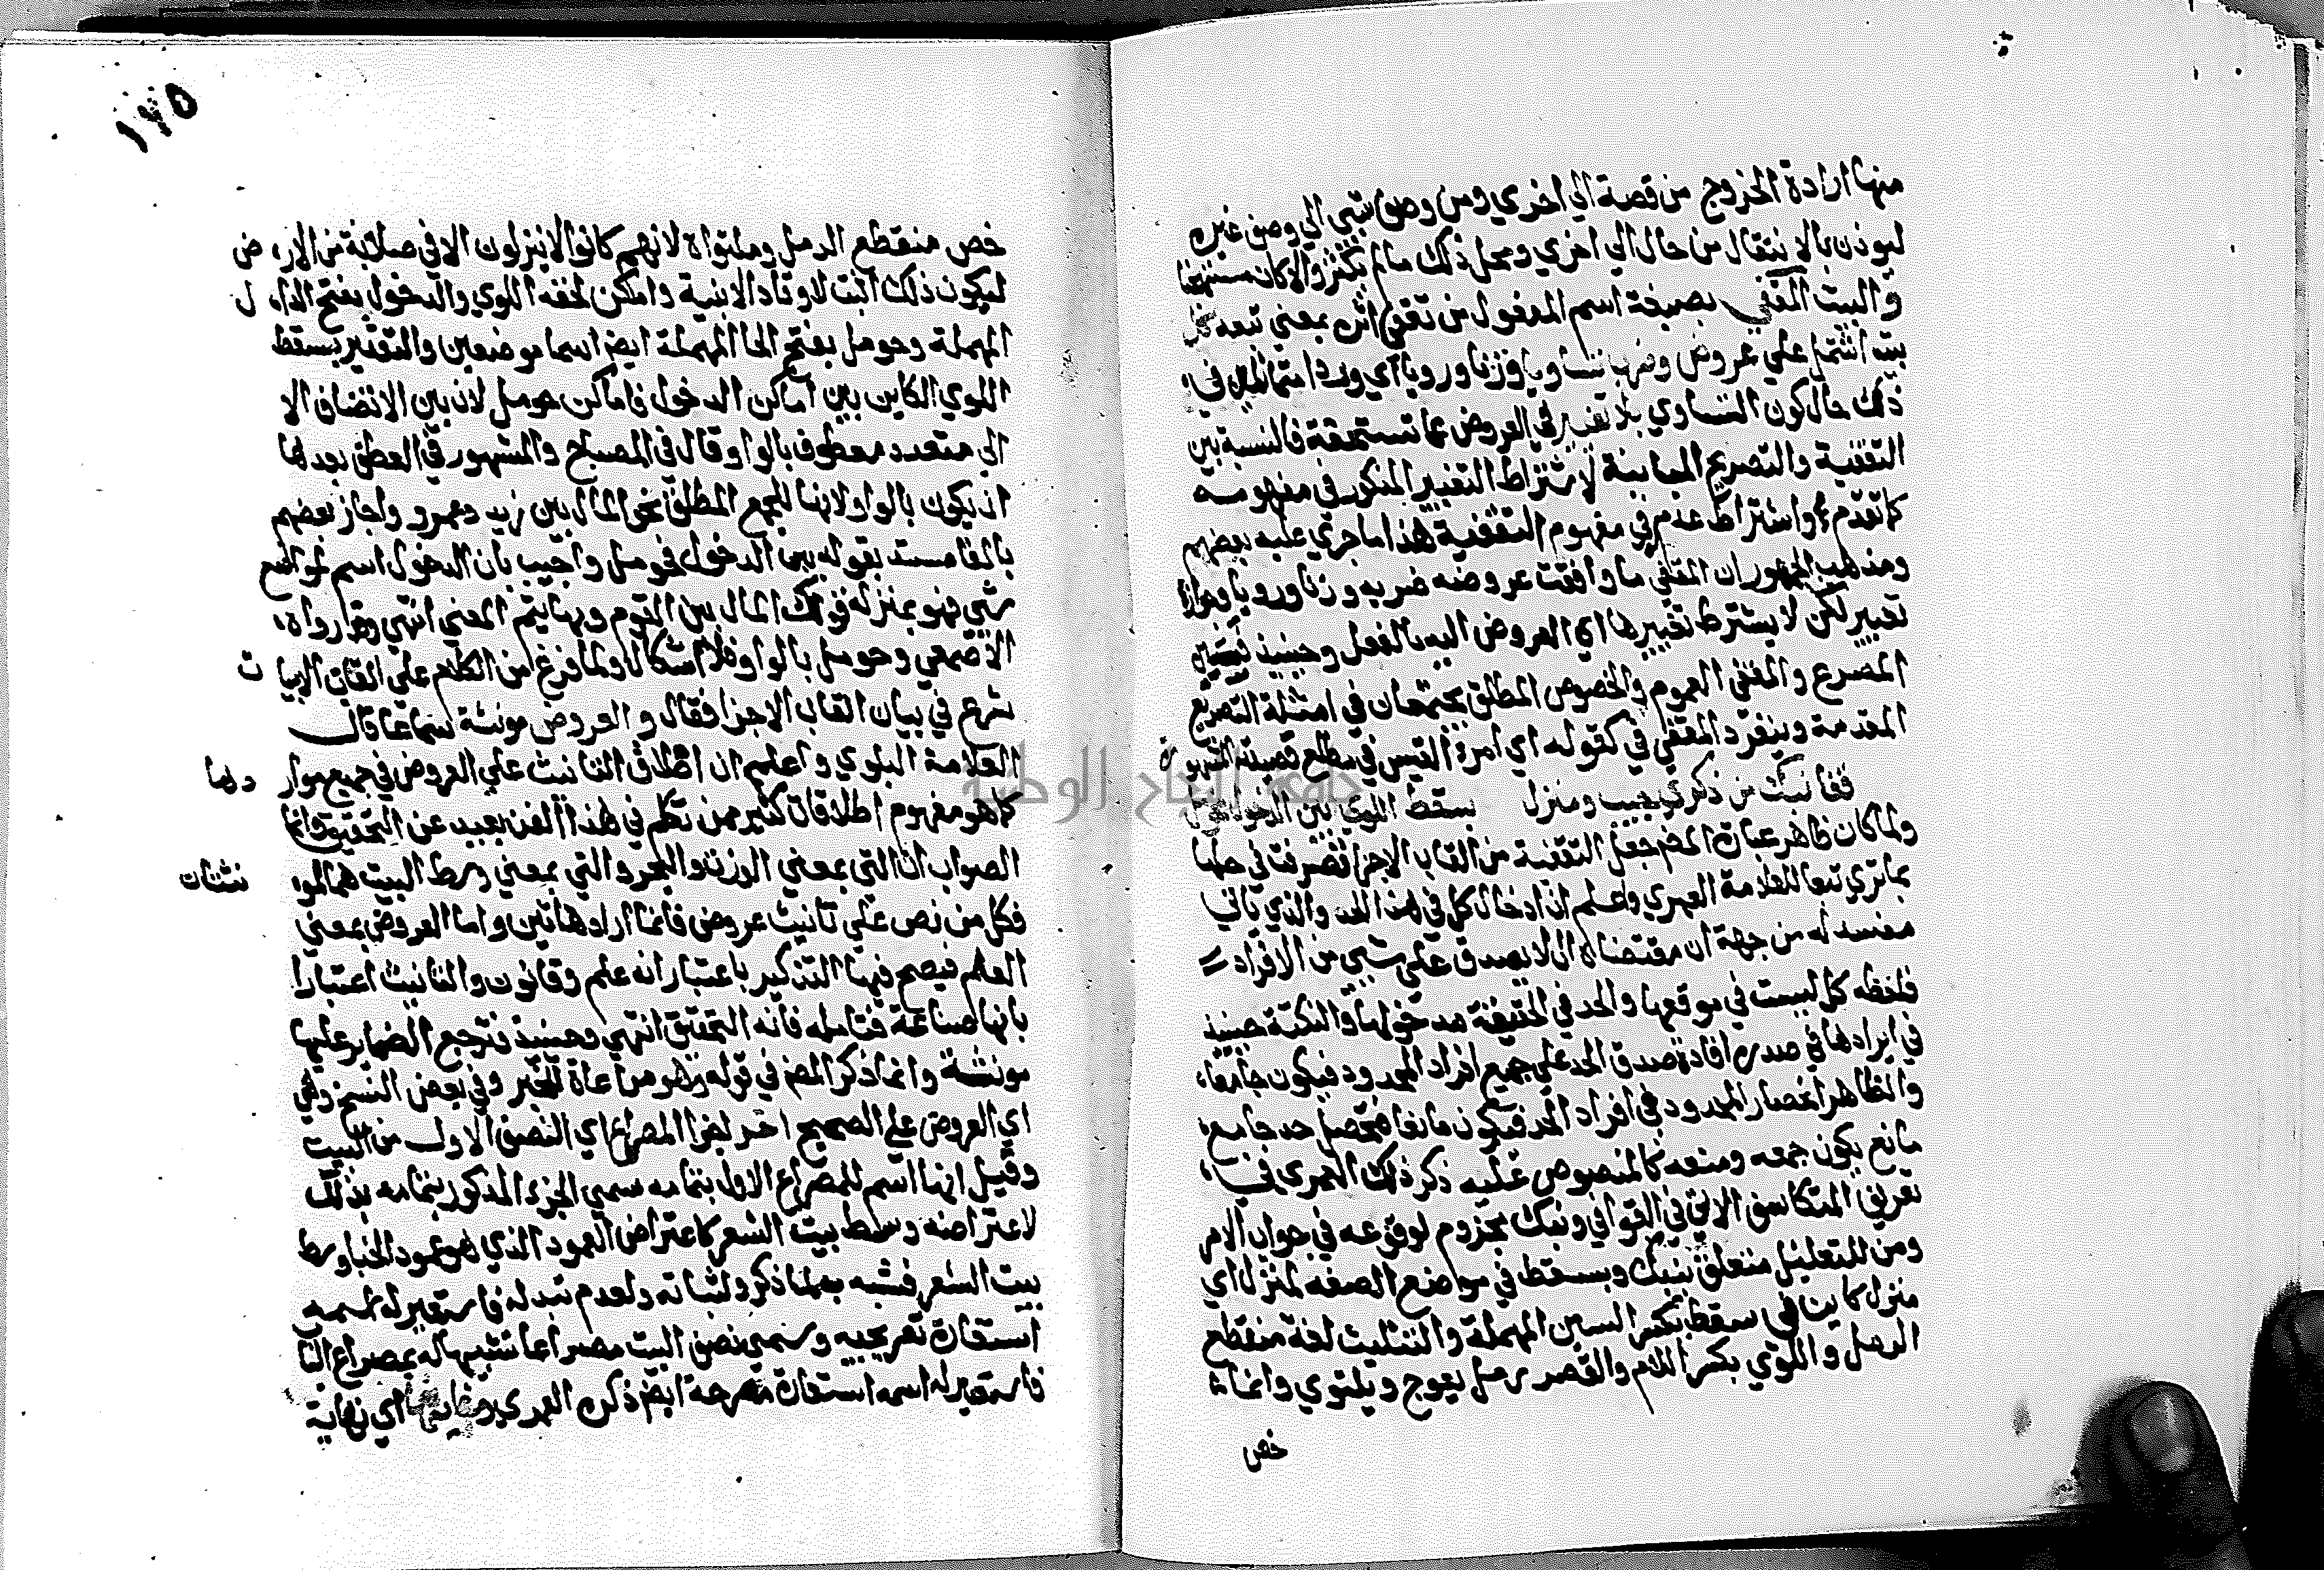 منها ارادة الخروج من قصة الي اخري ومن وصف شي الي وصف غيره
ليوذن بالانتقال من حال الي اخري ومحل ذلك مالم يكثر والا كان مستهجنا
والبيت المقفي بصيغة اسم المفعول من تقفي اثره بمعني تبعه كل
بيت اشتمل علي عروض وضرب تساويا وزنا ورويا اي وردا متماثلين في
ذلك حال كون التساوي بلا تغيير في العروض عما تستحقه فالنسبة بين
التقفية والتصريع المباينة لاشتراط التغيير المذكور في مفهومه
كما تقدم واشتراط عدمه في مفهوم التقفية هذا ما جري عليه بعضهم
ومذهب الجمهور ان المقفي ما وافقت عروضه ضربه وزنا ورويا
تغيير لكن لا يشترط تغييرها اي العروض اليه بالفعل وحينيذ فبين
المصرع والمقفي العموم والخصوص المطلق يجتمعان في امثلة التصريع
المقدمة وينفرد المقفي في كقوله اي امرئ القيس في مطلع قصيدته
قفا نبك من ذكري حبيب ومنزل بسقط اللوي بين الدخول فحومل
ولما كان ظاهر عبارة المص جعل التقفية من القاب الاجزا تصرفت في حلها
بما تري تبعا للعلامة الغمري واعلم ان ادخال كل في هذا الحد والذي ياتي
مفسد له من جهة ان مقتضاه ان لا يصدق علي شي من الافراد
فلفظه كل ليست في موقعها والحد في الحقيقة مدخولها والنكتة حينيذ
في ايرادها في صدره افادة صدق الحد علي جميع افراد المحدود فيكون جامعا
والظاهر انحصار المحدود في افراد الحد فيكون مانعا فيحصل حد جامع
مانع يكون جمعه ومنعه كالمنصوص عليه ذكر ذلك الغمري في
تعريف المتكاوس الاتي في القوافي ونبك مجزوم لوقوعه في جواب الامر
ومن للتعليل متعلق بنبك وبسقط في مواضع الصفه لمنزل اي
منزل كاين في سقط بكسر السين المهملة والتثليث لغة منقطع
الرمل واللوي بكسر اللام والقصر رمل يعوج ويلتوي وانما
خص
١٧٥
خص منقطع الرمل وملتواه لانهم كانوا لا ينزلون الا في صلابة من الارض
ليكون ذلك اثبت لاوتاد الابنية وامكن لحفر اللوي والدخول بفتح الدال
المهملة وحومل بفتح الحا المهملة ايض اسما موضعين والتقدير بسقط
اللوي الكاين بين اماكن الدخول فاماكن حومل لان بين لا تضاف الا
الي متعدد معطوف بالواو قال في المصباح والمشهور في العطف بعدها
ان يكون بالواو لانها للجمع المطلق نحو المال بين زيد وعمرو واجاز بعضهم
بالفا مستدلا بقوله بين الدخول فحومل واجيب بان الدخول اسم لمواضع
شتي فهو بمنزلة قولك المال بين القوم وبها يتم المعني انتهي وقد رواه
الاصمعي وحومل بالواو فلا اشكال ولما فرغ من الكلام علي القاب الابيات
شرع في بيان القاب الاجزا فقال والعروض مونثة سماعا قال
العلامة البلوي واعلم ان اطلاق التانيث علي العروض في جميع مواردها
كما هو مفهوم اطلاقات كثير ممن تكلم في هذا الفن بعيد عن التحقيق وانما
الصواب ان التي بمعني الوزن والبحر والتي بمعني وسط البيت هما المونثتان
فكل من نص علي تانيث عروض فانما اراد هاتين واما العروض بمعني
العلم فيصح فيها التذكير باعتبار انه علم وقانون والتانيث اعتبارا
بانها صناعة فتامله فانه التحقيق انتهي وحينيذ فترجع الضماير عليها
مونثة وانما ذكر المص في قوله وهو مراعاة للخبر وفي بعض النسخ وهي
اي العروض علي الصحيح اخر جزء المصراع اي النصف الاول من البيت
وقيل انها اسم للمصراع الاول بتمامه سمي الجزء المذكور بتمامه بذلك
لاعتراضه وسط بيت الشعر كاعتراض العمود الذي هو عمود الخبا وسط
بيت الشعر فشبه به لما ذكر ولثباته ولعدم تبدله فاستعير له اسمه
استعارة تصريحيه وسمي نصف البيت مصراعا تشبيها له بمصراع البا
فاستعير له اسمه استعارة مصرحة ايض ذكره الغمري وغايتها اي نهاية